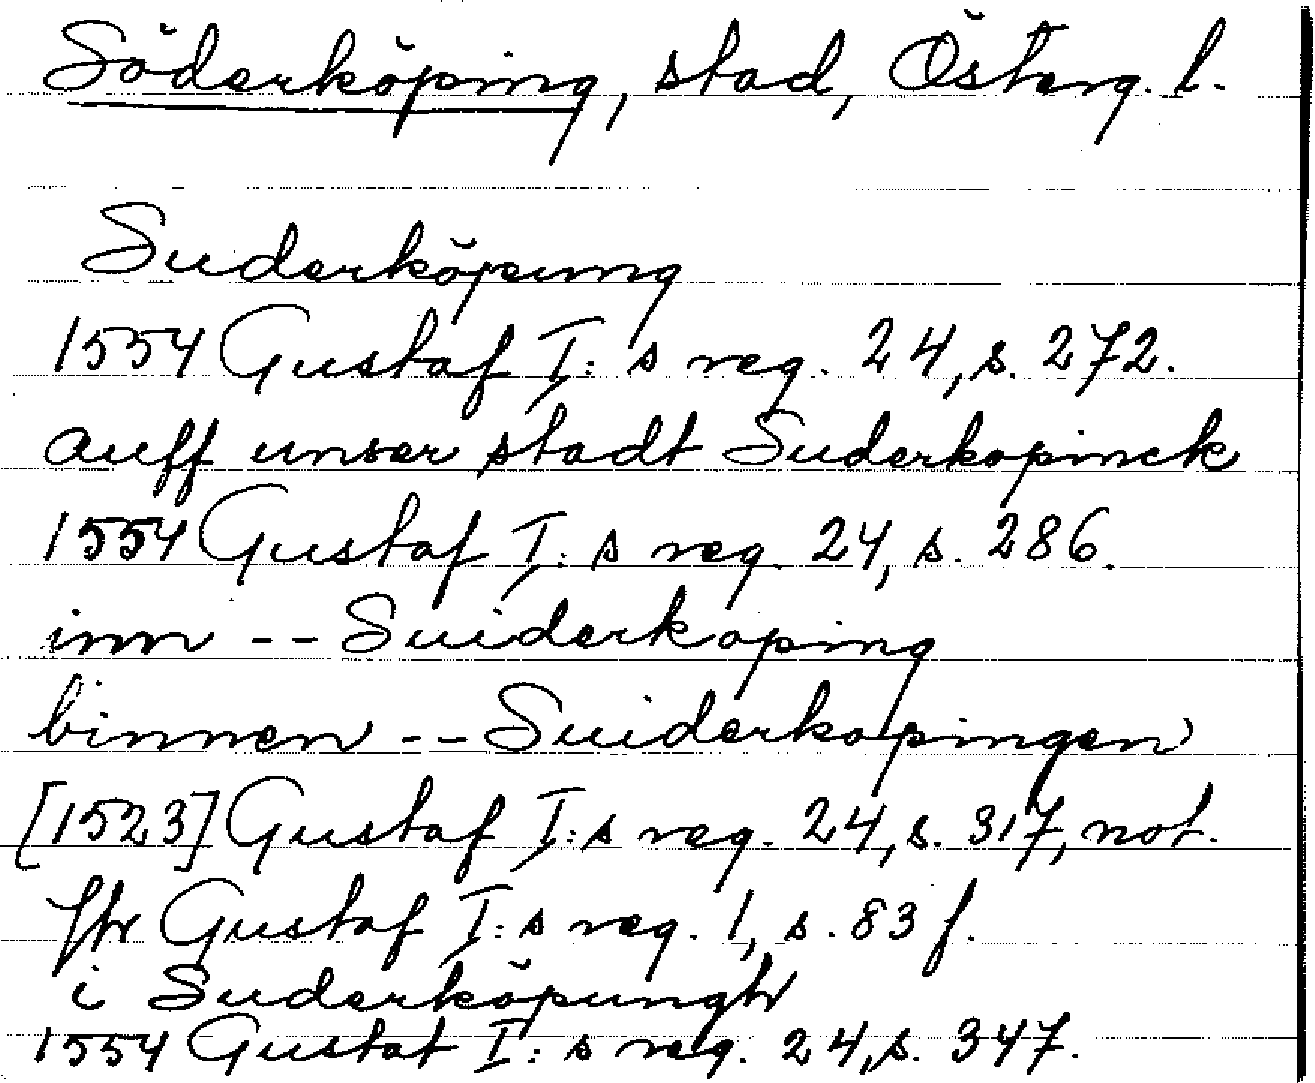 Söderköping, stad, Österg. l.
Suderköpung
1554 Gustaf I: s reg. 24, s. 272.
auff unser stadt Suderkopinck
1554 Gustaf I: s reg. 24, s. 286.
inn -- Suiderkoping
binnen -- Suiderkopingen
[1523] Gustaf I: s reg. 24, s. 317, not.
Jfr Gustaf I: s reg. 1, s. 83 f.
i Suderköpungh
1554 Gustaf I: s reg. 24, s. 347.